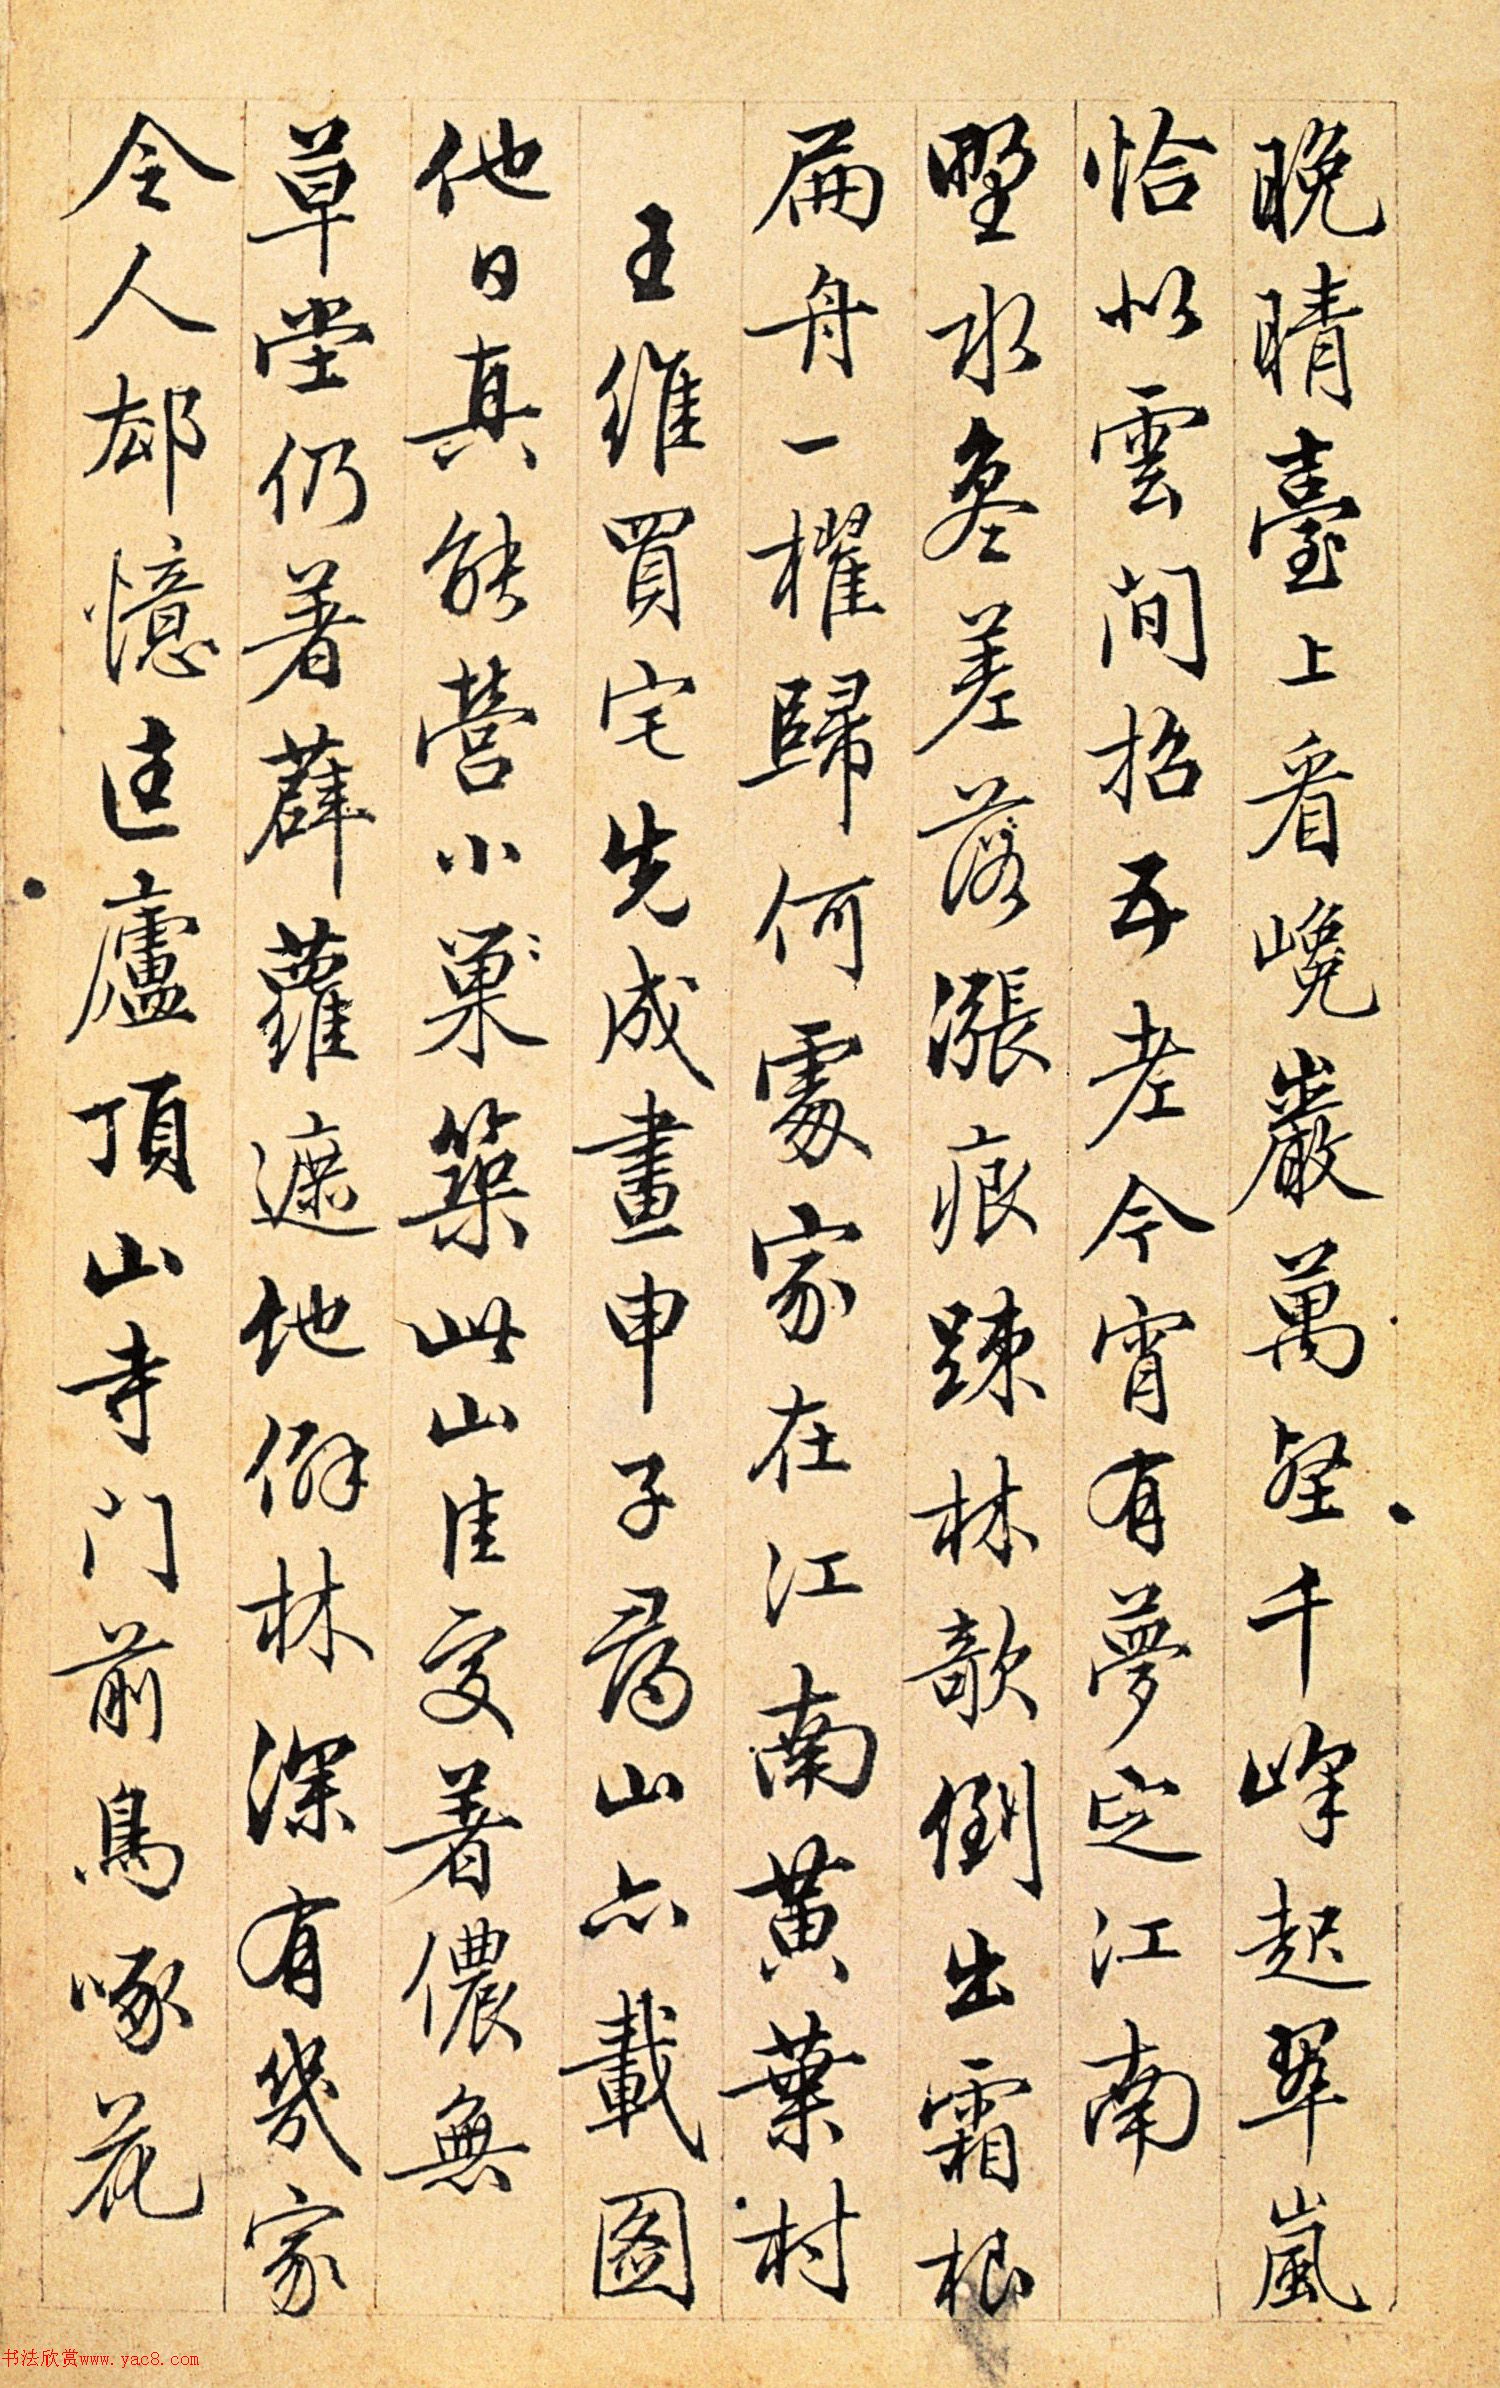 晚晴臺上看巉巖萬壑千峰起翠嵐
恰似雲間招五老今宵有夢定江南
野水參差落漲痕疎林欹倒出霜根
扁舟一櫂歸何處家在江南黃葉村
王維買宅先成畫甲子尋山亦載圖
他日真能營小巢築此山佳處著儂無
草堂仍著薜蘿遮地僻林深有幾家
令人却憶匡廬頂山寺門前鳥啄花
书法欣赏www.yac8.com